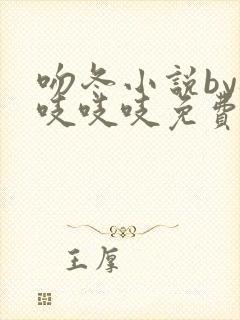 吻冬小說by
吱吱吱免費
王厚